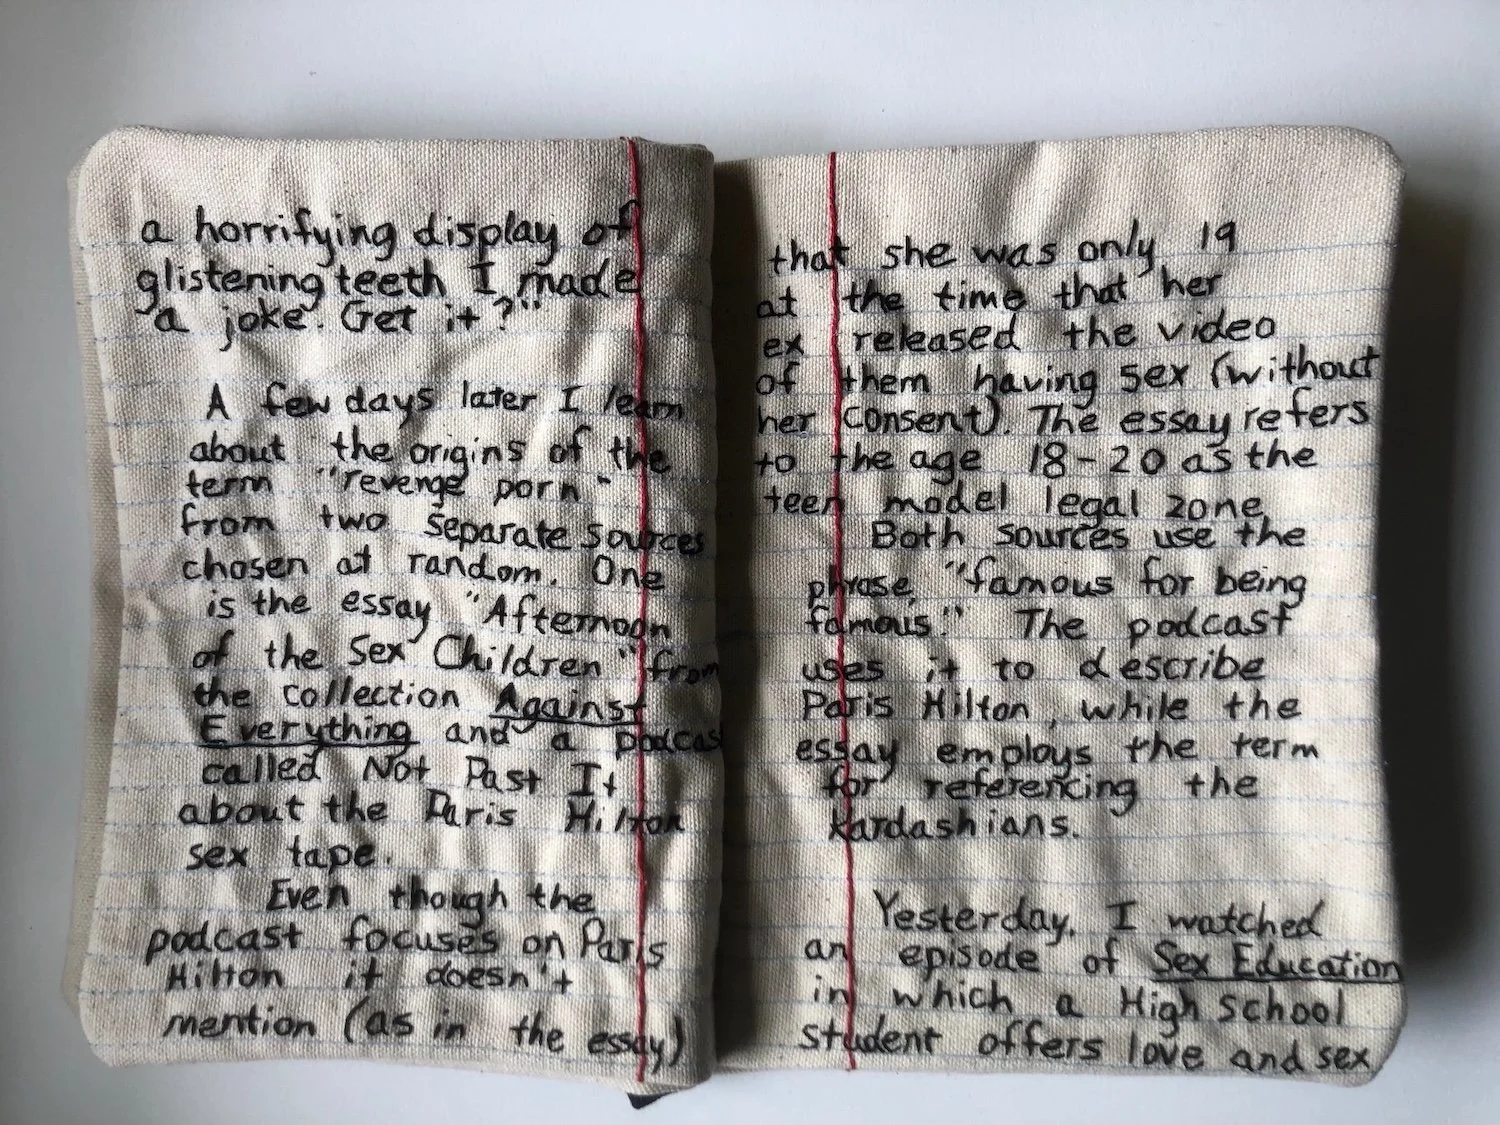 a horrifying display of
glistening teeth I made
a joke. Get it?"
A few days later I learn
about the origins of the
term "revenge porn"
from two separate sources
chosen at random. One
is the essay "Afternoon
of the Sex Children" from
the collection Against
Everything and a podcast
called Not Past It
about the Paris Hilton
sex tape.
Even though the
podcast focuses on Paris
Hilton it doesn't
mention (as in the essay)
that she was only 19
at the time that her
ex released the video
of them having sex (without
her consent). The essay refers
to the age 18-20 as the
teen model legal zone
Both sources use the
phrase "famous for being
famous." The podcast
uses it to describe
Paris Hilton, while the
essay employs the term
for referencing the
Kardashians.
Yesterday, I watched
an episode of Sex Education
in which a High school
student offers love and sex